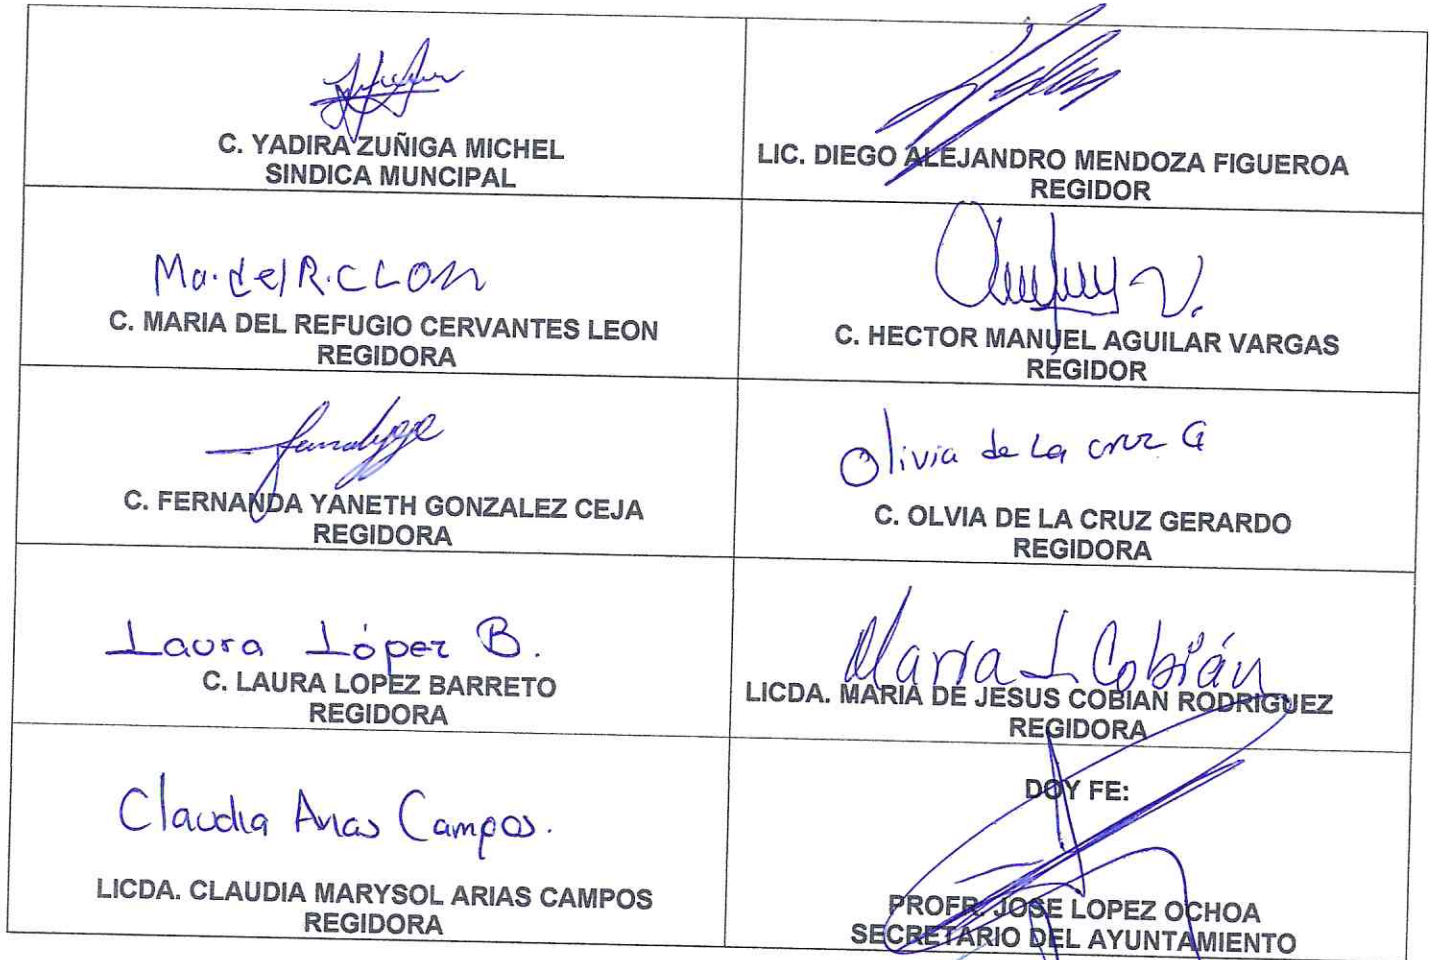 C. YADIRA ZUÑIGA MICHEL
SINDICA MUNCIPAL
LIC. DIEGO ALEJANDRO MENDOZA FIGUEROA
REGIDOR
Ma. del R. C LON
C. MARIA DEL REFUGIO CERVANTES LEON
REGIDORA
C. HECTOR MANUEL AGUILAR VARGAS
REGIDOR
C. FERNANDA YANETH GONZALEZ CEJA
REGIDORA
Olivia de La cruz G
C. OLVIA DE LA CRUZ GERARDO
REGIDORA
Laura López B.
C. LAURA LOPEZ BARRETO
REGIDORA
Maria J Cobián
LICDA. MARIA DE JESUS COBIAN RODRIGUEZ
REGIDORA
Claudia Arias Campos.
LICDA. CLAUDIA MARYSOL ARIAS CAMPOS
REGIDORA
DOY FE:
PROFR. JOSE LOPEZ OCHOA
SECRETARIO DEL AYUNTAMIENTO